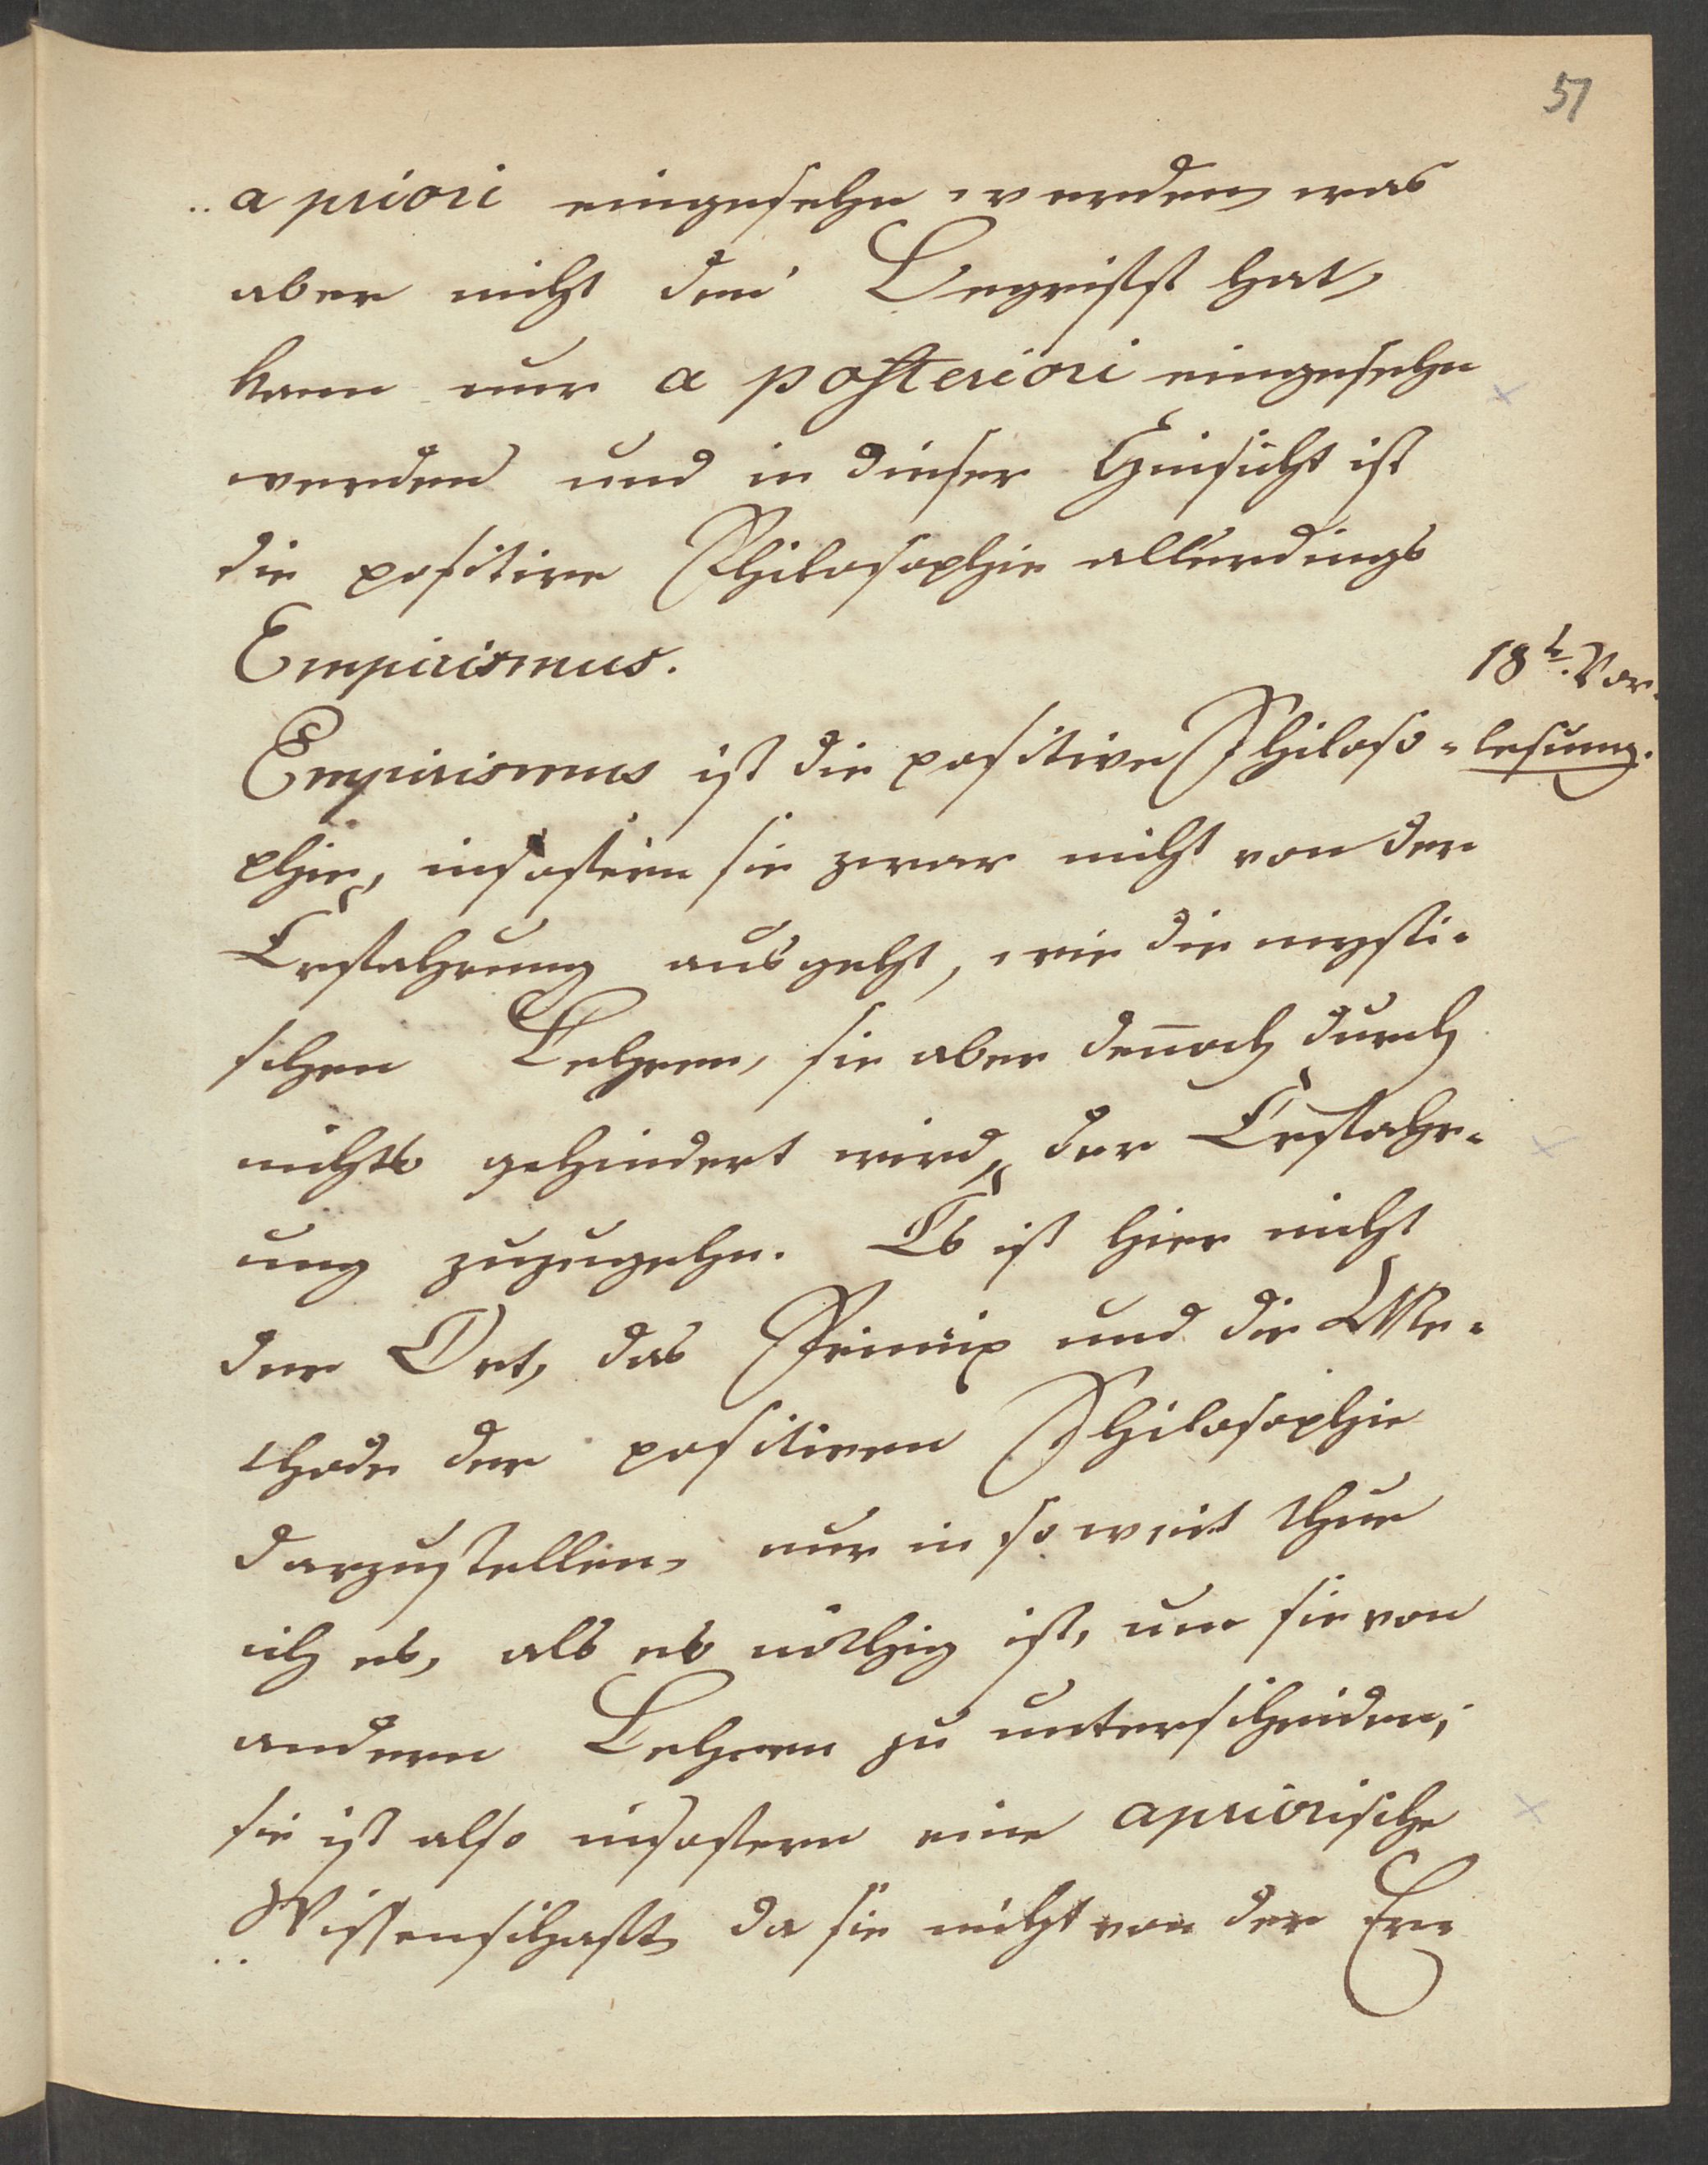 51
a priori eingesehn werden, was
aber nicht den Begriff hat,
kann nur a posteriori eingesehn
werden und in dieser Hinsicht ist
die positive Philosophie allerdings
Empirismus.
18t. Vor-
lesung.
Empirismus ist die positive Philoso-
phie, insofern sie zwar nicht von der
Erfahrung ausgeht, wie die mysti-
schen Lehren, sie aber deñoch durch
nichts gehindert wird, der Erfahr-
ung zuzugehn. Es ist hier nicht
der Ort, das Princip und die Me-
thode der positiven Philosophie
darzustellen, nur in so weit thue
ich es, als es nöthig ist, um sie von
andern Lehren zu unterscheiden;
sie ist also insofern eine apriorische
Wissenschaft, da sie nicht von der Er-